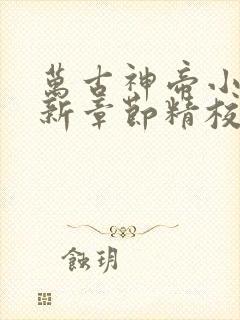 萬古神帝小
新章節精校
蝕玥